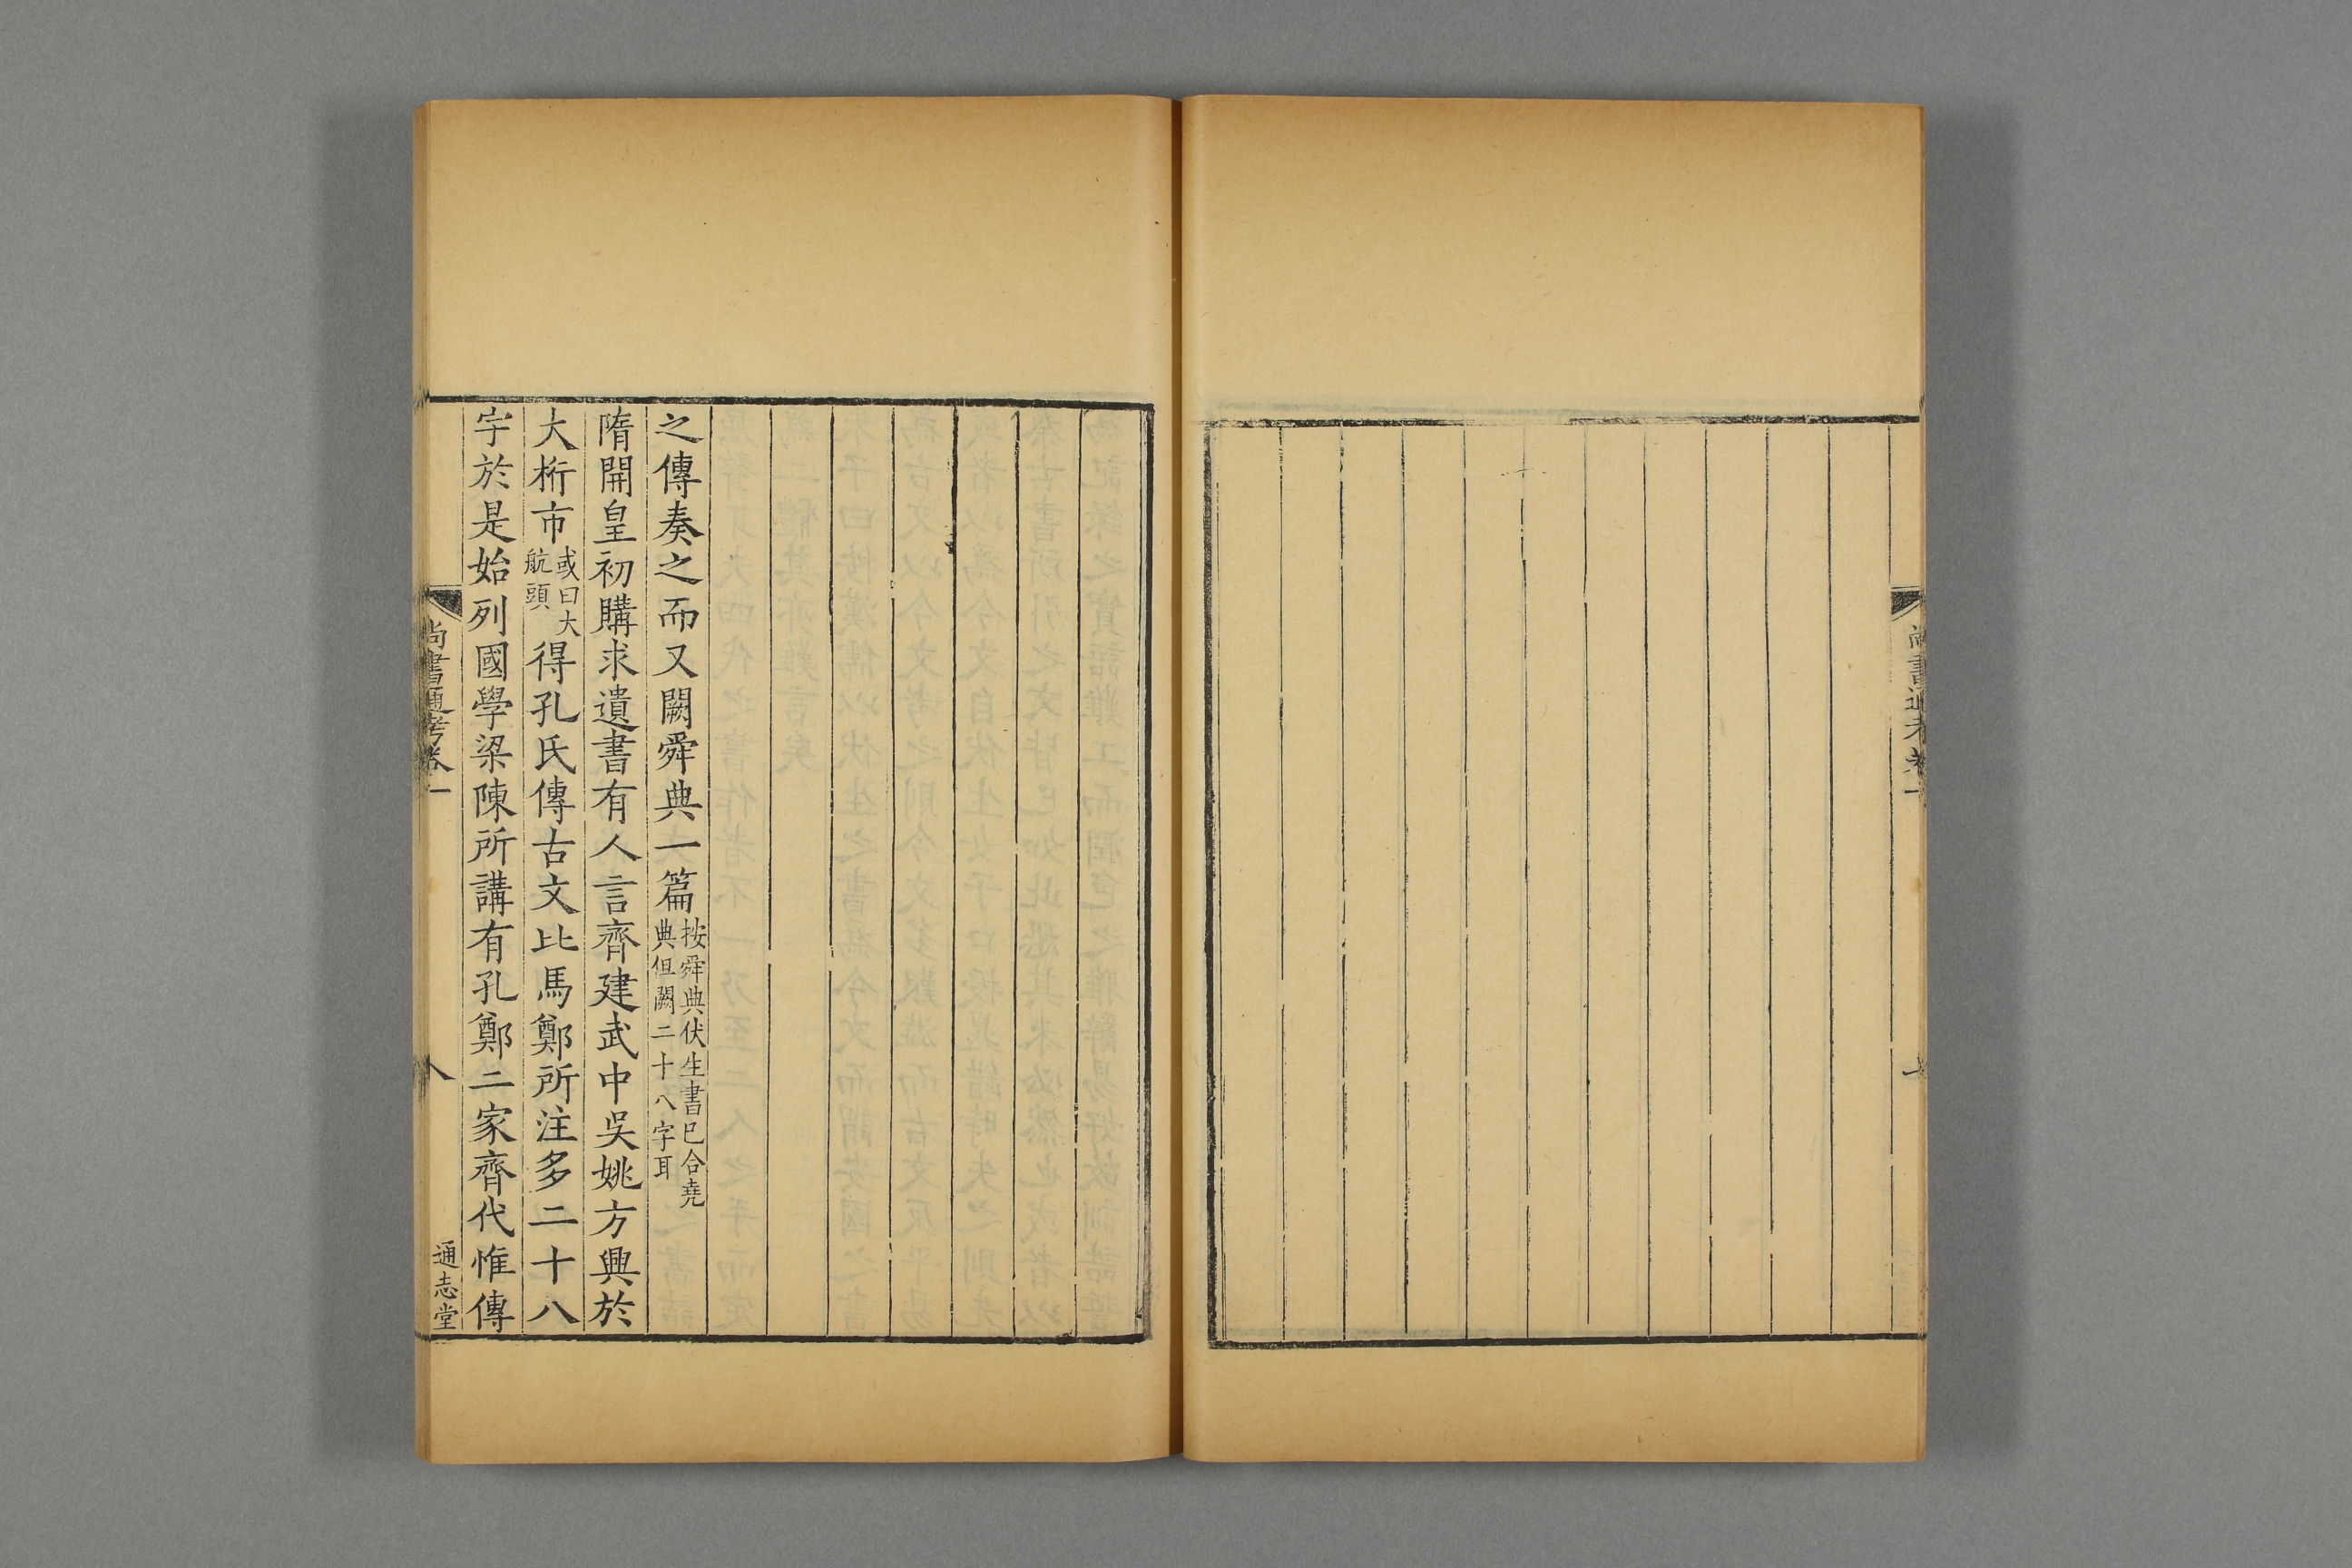 尚書通考卷一
七
之傳奏之而又闕舜典一篇按舜典伏生書巳合堯典但闕二十八字耳
隋開皇初購求遺書有人言齊建武中吳姚方興於
大桁市或曰大航頭得孔氏傳古文比馬鄭所注多二十八
字於是始列國學梁陳所講有孔鄭二家齊代惟傳
尚書通考卷一
八
通志堂